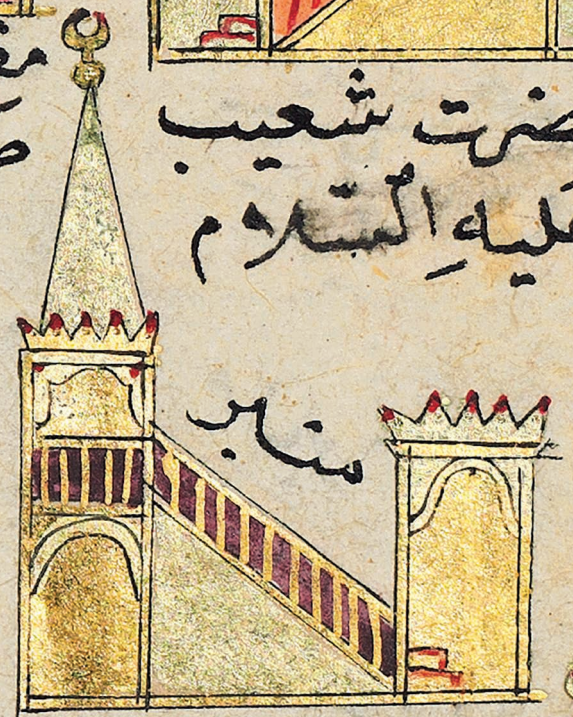 ضرت شعيب
عليهِ السّلام
منابر